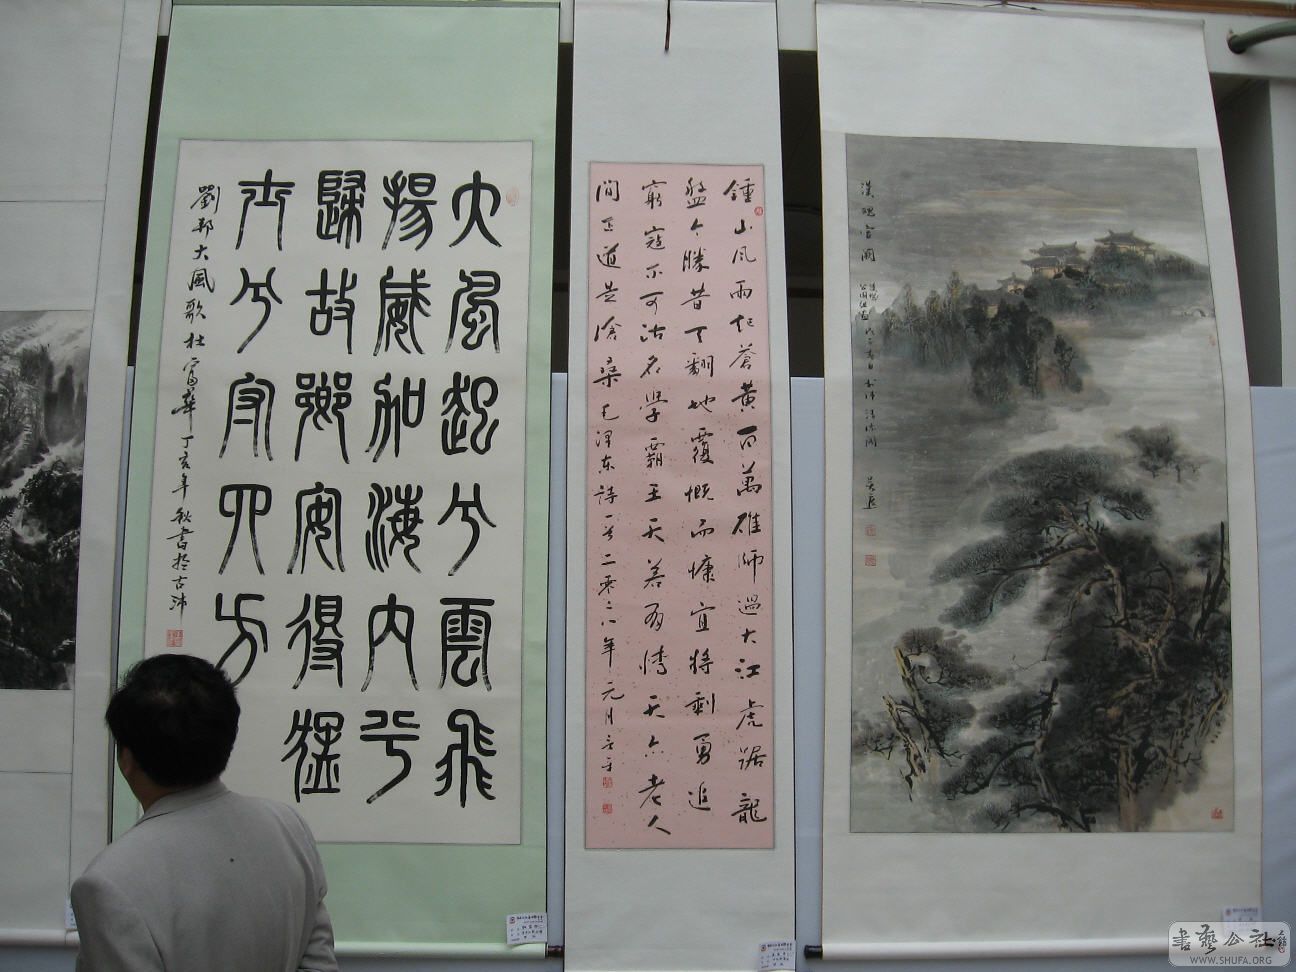 大風起兮雲飛
揚威加海内兮
歸故鄉安得猛
士兮守四方
劉邦大風歌杜富華丁亥年秋書於古沛
鍾山風雨起蒼黃百萬雄師過大江虎踞龍
盤今勝昔天翻地覆慨而慷宜將剩勇追
窮寇不可沽名學霸王天若有情天亦老人
間正道是滄桑毛澤东詩一首二零〻八年元月
漢魂宮闕
書藝公社
WWW.SHUFA.ORG